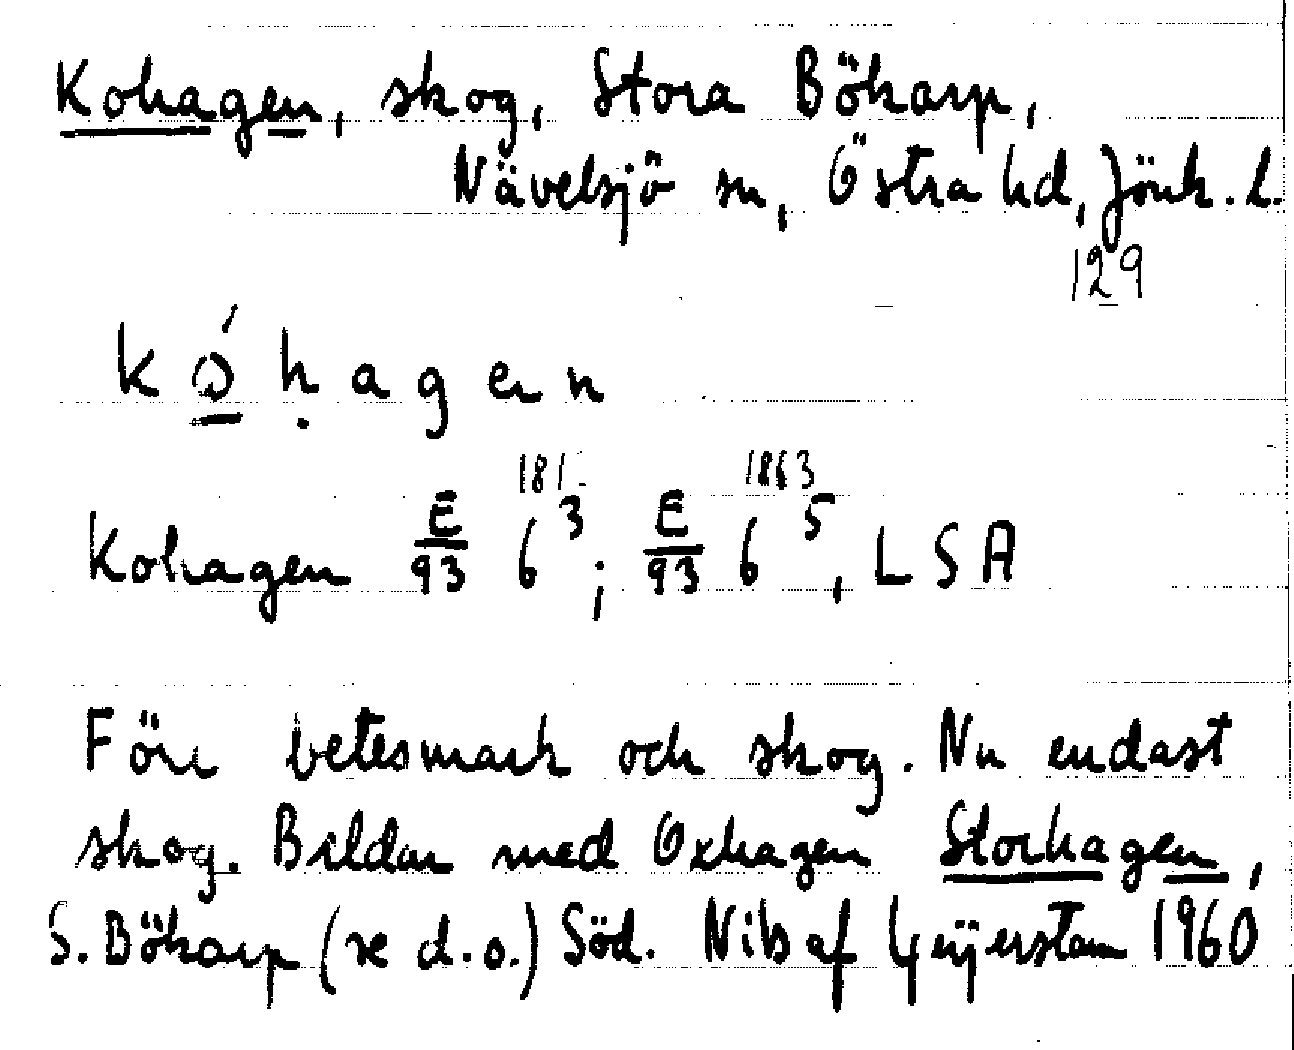 Kohagen, skog, Stora Bökarp,
Nävelsjö sn, Östra hd, Jönk. l.
129
kó̲ḥagen
1813 1863
Kohagen E/93 6³; E/93 6⁵, LSA
Förr betesmark och skog. Nu endast
skog. Bildar med Oxhagen Storhagen,
S. Bökarp (se d.o.) Söd. Nils af Geijerstam 1960